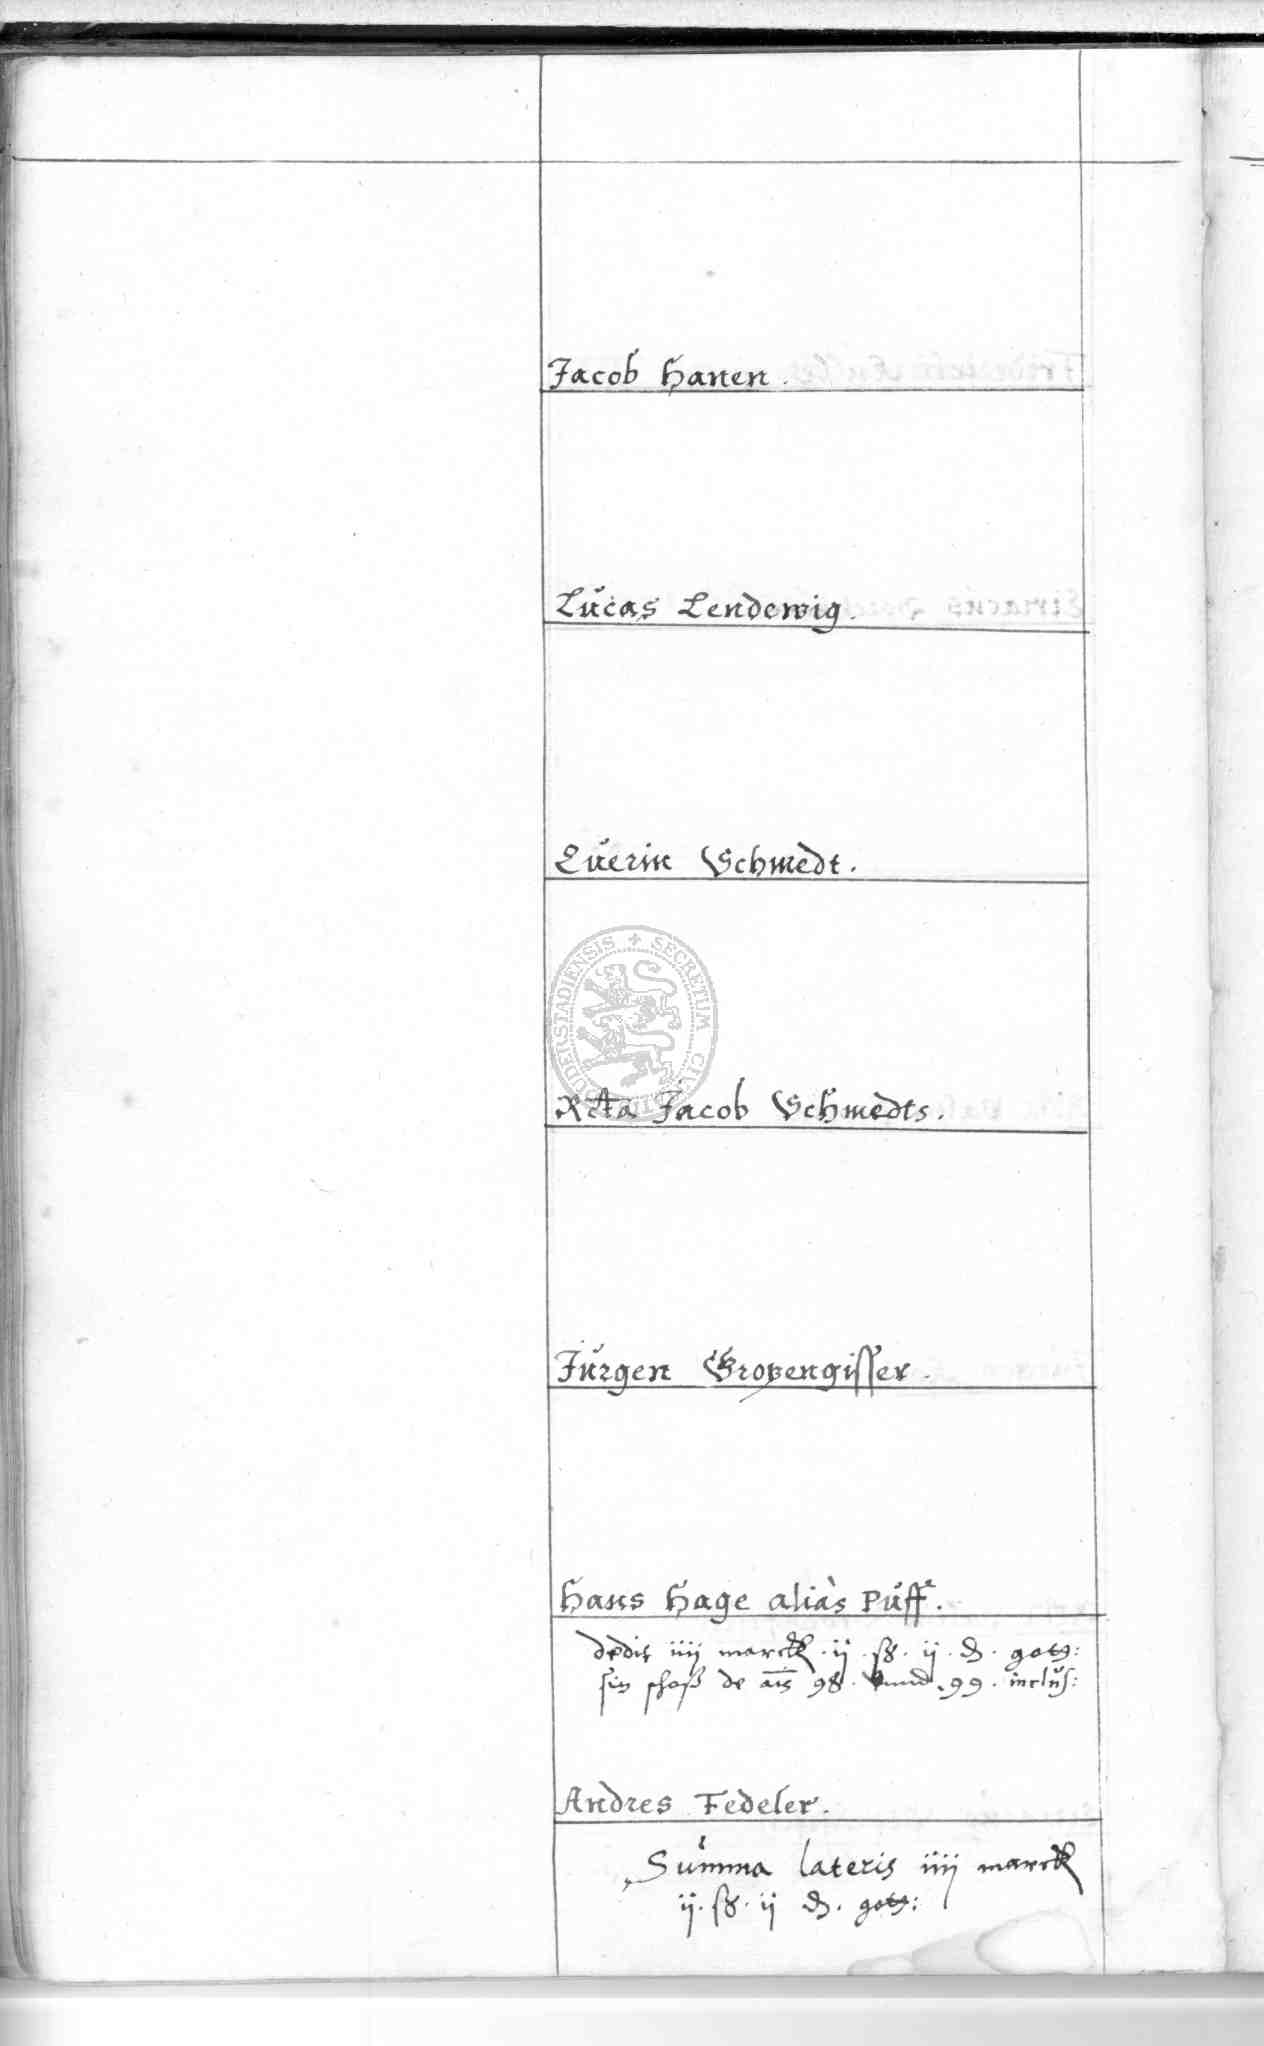 Jacob Hanen.
Lucas Lendewig.
Querin Schmedt.
SECRETUM CIVITATIS DUDERSTADIENSIS
Rcta Jacob Schmedts.
Jurgen Gropengisser.
Hans Hage alias Puff.
dedit iiij marck . ij . ß . ij . d . gotz:
sin schoß de ais 98 . unnd . 99 . inclus:
Andres Fedeler.
Summa lateris iiij marck
ij . ß . ij d . gotz: